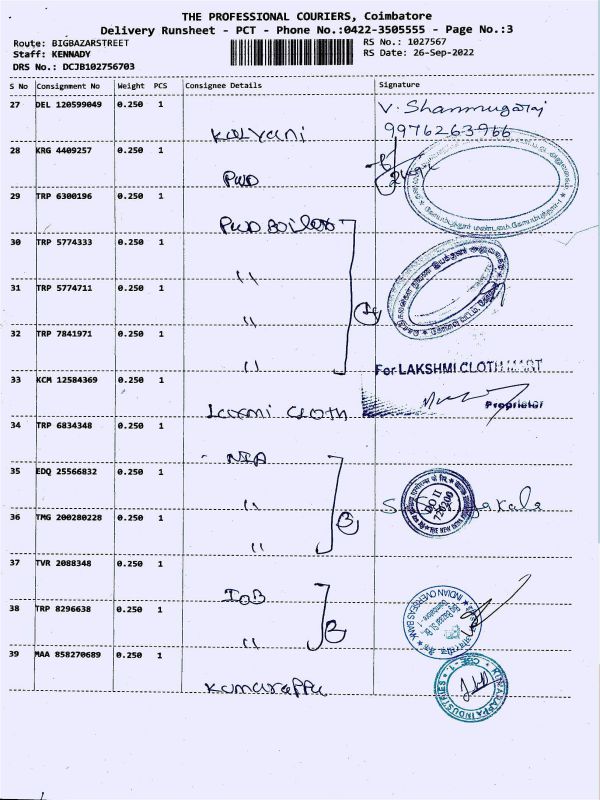 THE PROFESSIONAL COURIERS, Coimbatore
Delivery Runsheet - PCT - Phone No.:0422-3505555 - Page No.:3
Route: BIGBAZARSTREET
RS No.: 1027567
Staff: KENNADY
RS Date: 26-Sep-2022
DRS No.: DCJB102756703
S No Consignment No Weight PCS Consignee Details Signature
27 DEL 120599049 0.250 1 V. Shanmugaraj
9976263966
Kalyani
28 KRG 4409257 0.250 1
PWD
29 TRP 6300196 0.250 1
PWD Boiler
30 TRP 5774333 0.250 1
"
31 TRP 5774711 0.250 1
"
32 TRP 7841971 0.250 1
"
For LAKSHMI CLOTH MART
33 KCM 12584369 0.250 1
Proprietor
Laxmi Cloth
34 TRP 6834348 0.250 1
NIA
35 EDQ 25566832 0.250 1
"
DO II
720200
36 TMG 200280228 0.250 1
"
37 TVR 2088348 0.250 1
IOB
38 TRP 8296638 0.250 1
INDIAN OVERSEAS BANK
"
39 MAA 858270689 0.250 1
KUMARAPPA INDUSTRIES
CBE - 1
Kumarappa